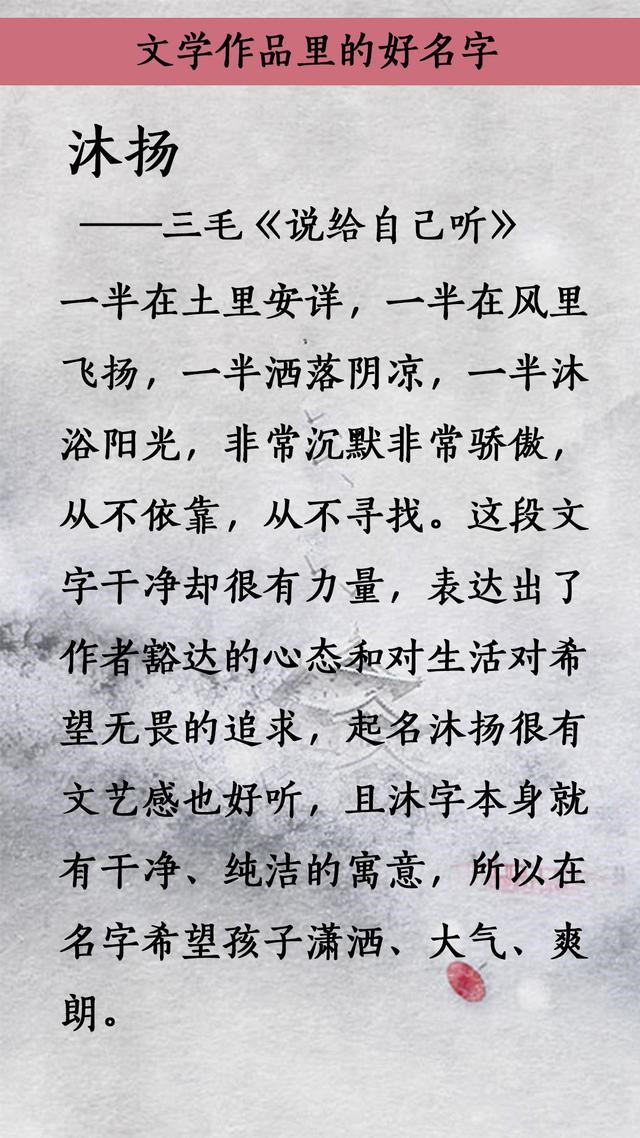 文学作品里的好名字
沐扬
——三毛《说给自己听》
一半在土里安详，一半在风里
飞扬，一半洒落阴凉，一半沐
浴阳光，非常沉默非常骄傲，
从不依靠，从不寻找。这段文
字干净却很有力量，表达出了
作者豁达的心态和对生活对希
望无畏的追求，起名沐扬很有
文艺感也好听，且沐字本身就
有干净、纯洁的寓意，所以在
名字希望孩子潇洒、大气、爽
朗。